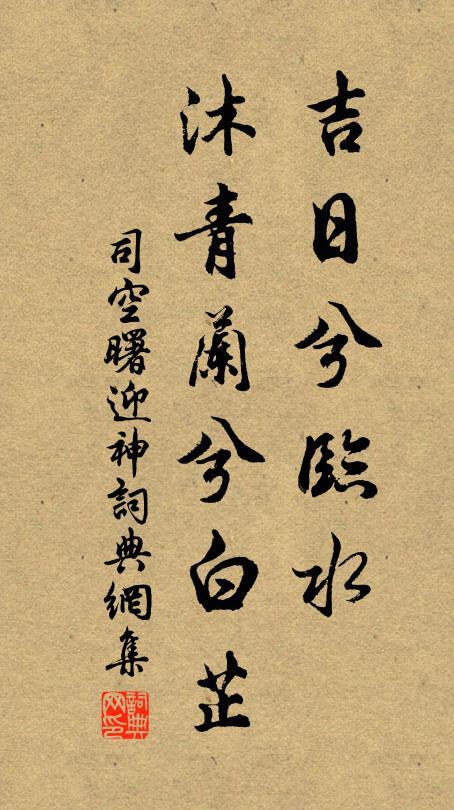 吉日兮臨水
沐青蘭兮白芷
司空曙迎神詞典網集
詞典网印